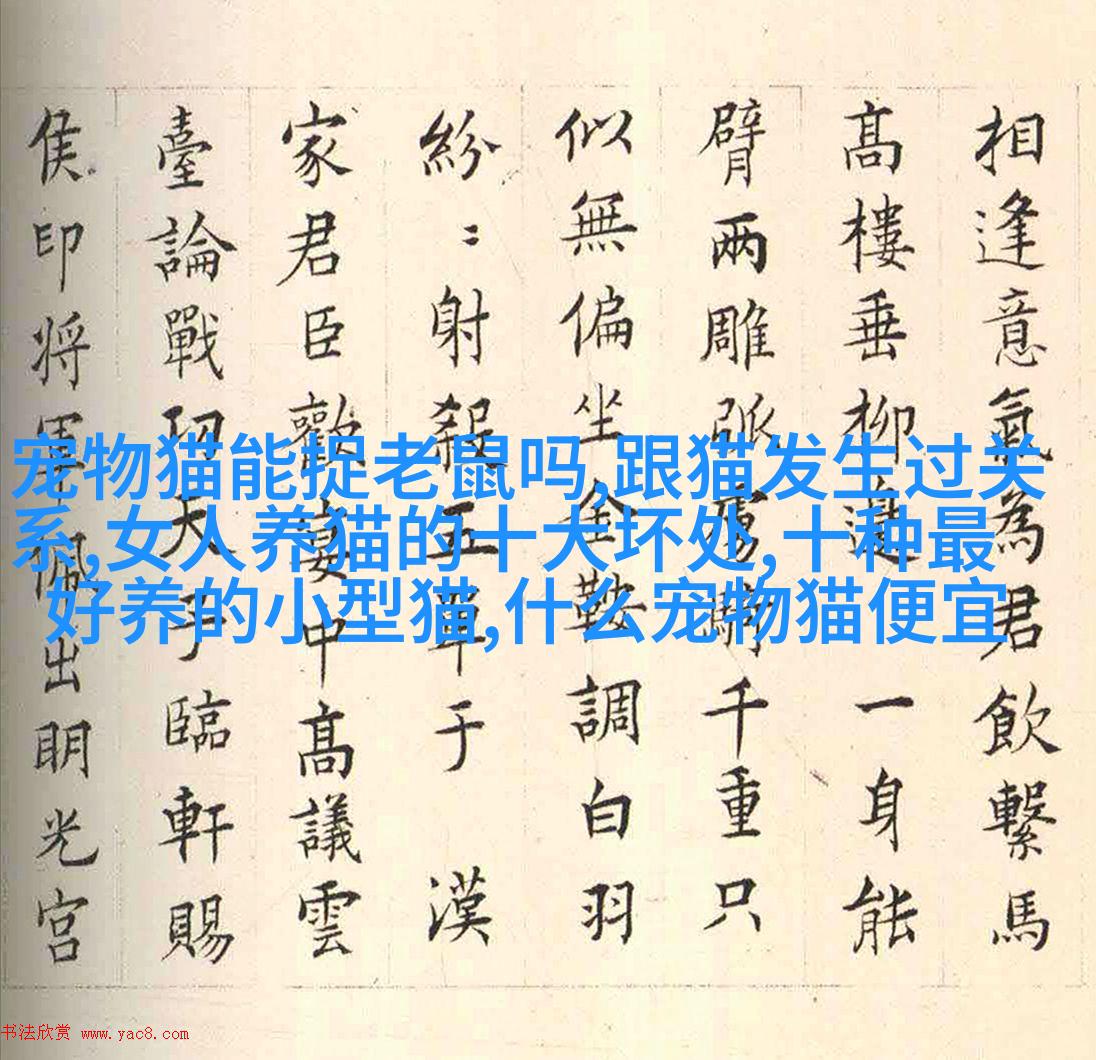 相逢意氣為君飲繫馬
髙樓垂柳邊一身能
臂兩雕弧虜騎千重只
似無偏坐金鞍調白羽
紛〻射殺五單于 漢
家君臣歡宴中髙議雲
臺論戰功天子臨軒賜
侯印将軍佩出明光宮
宠物猫能捉老鼠吗,跟猫发生过关
系,女人养猫的十大坏处,十种最
好养的小型猫,什么宠物猫便宜
书法欣赏 www.yac8.com